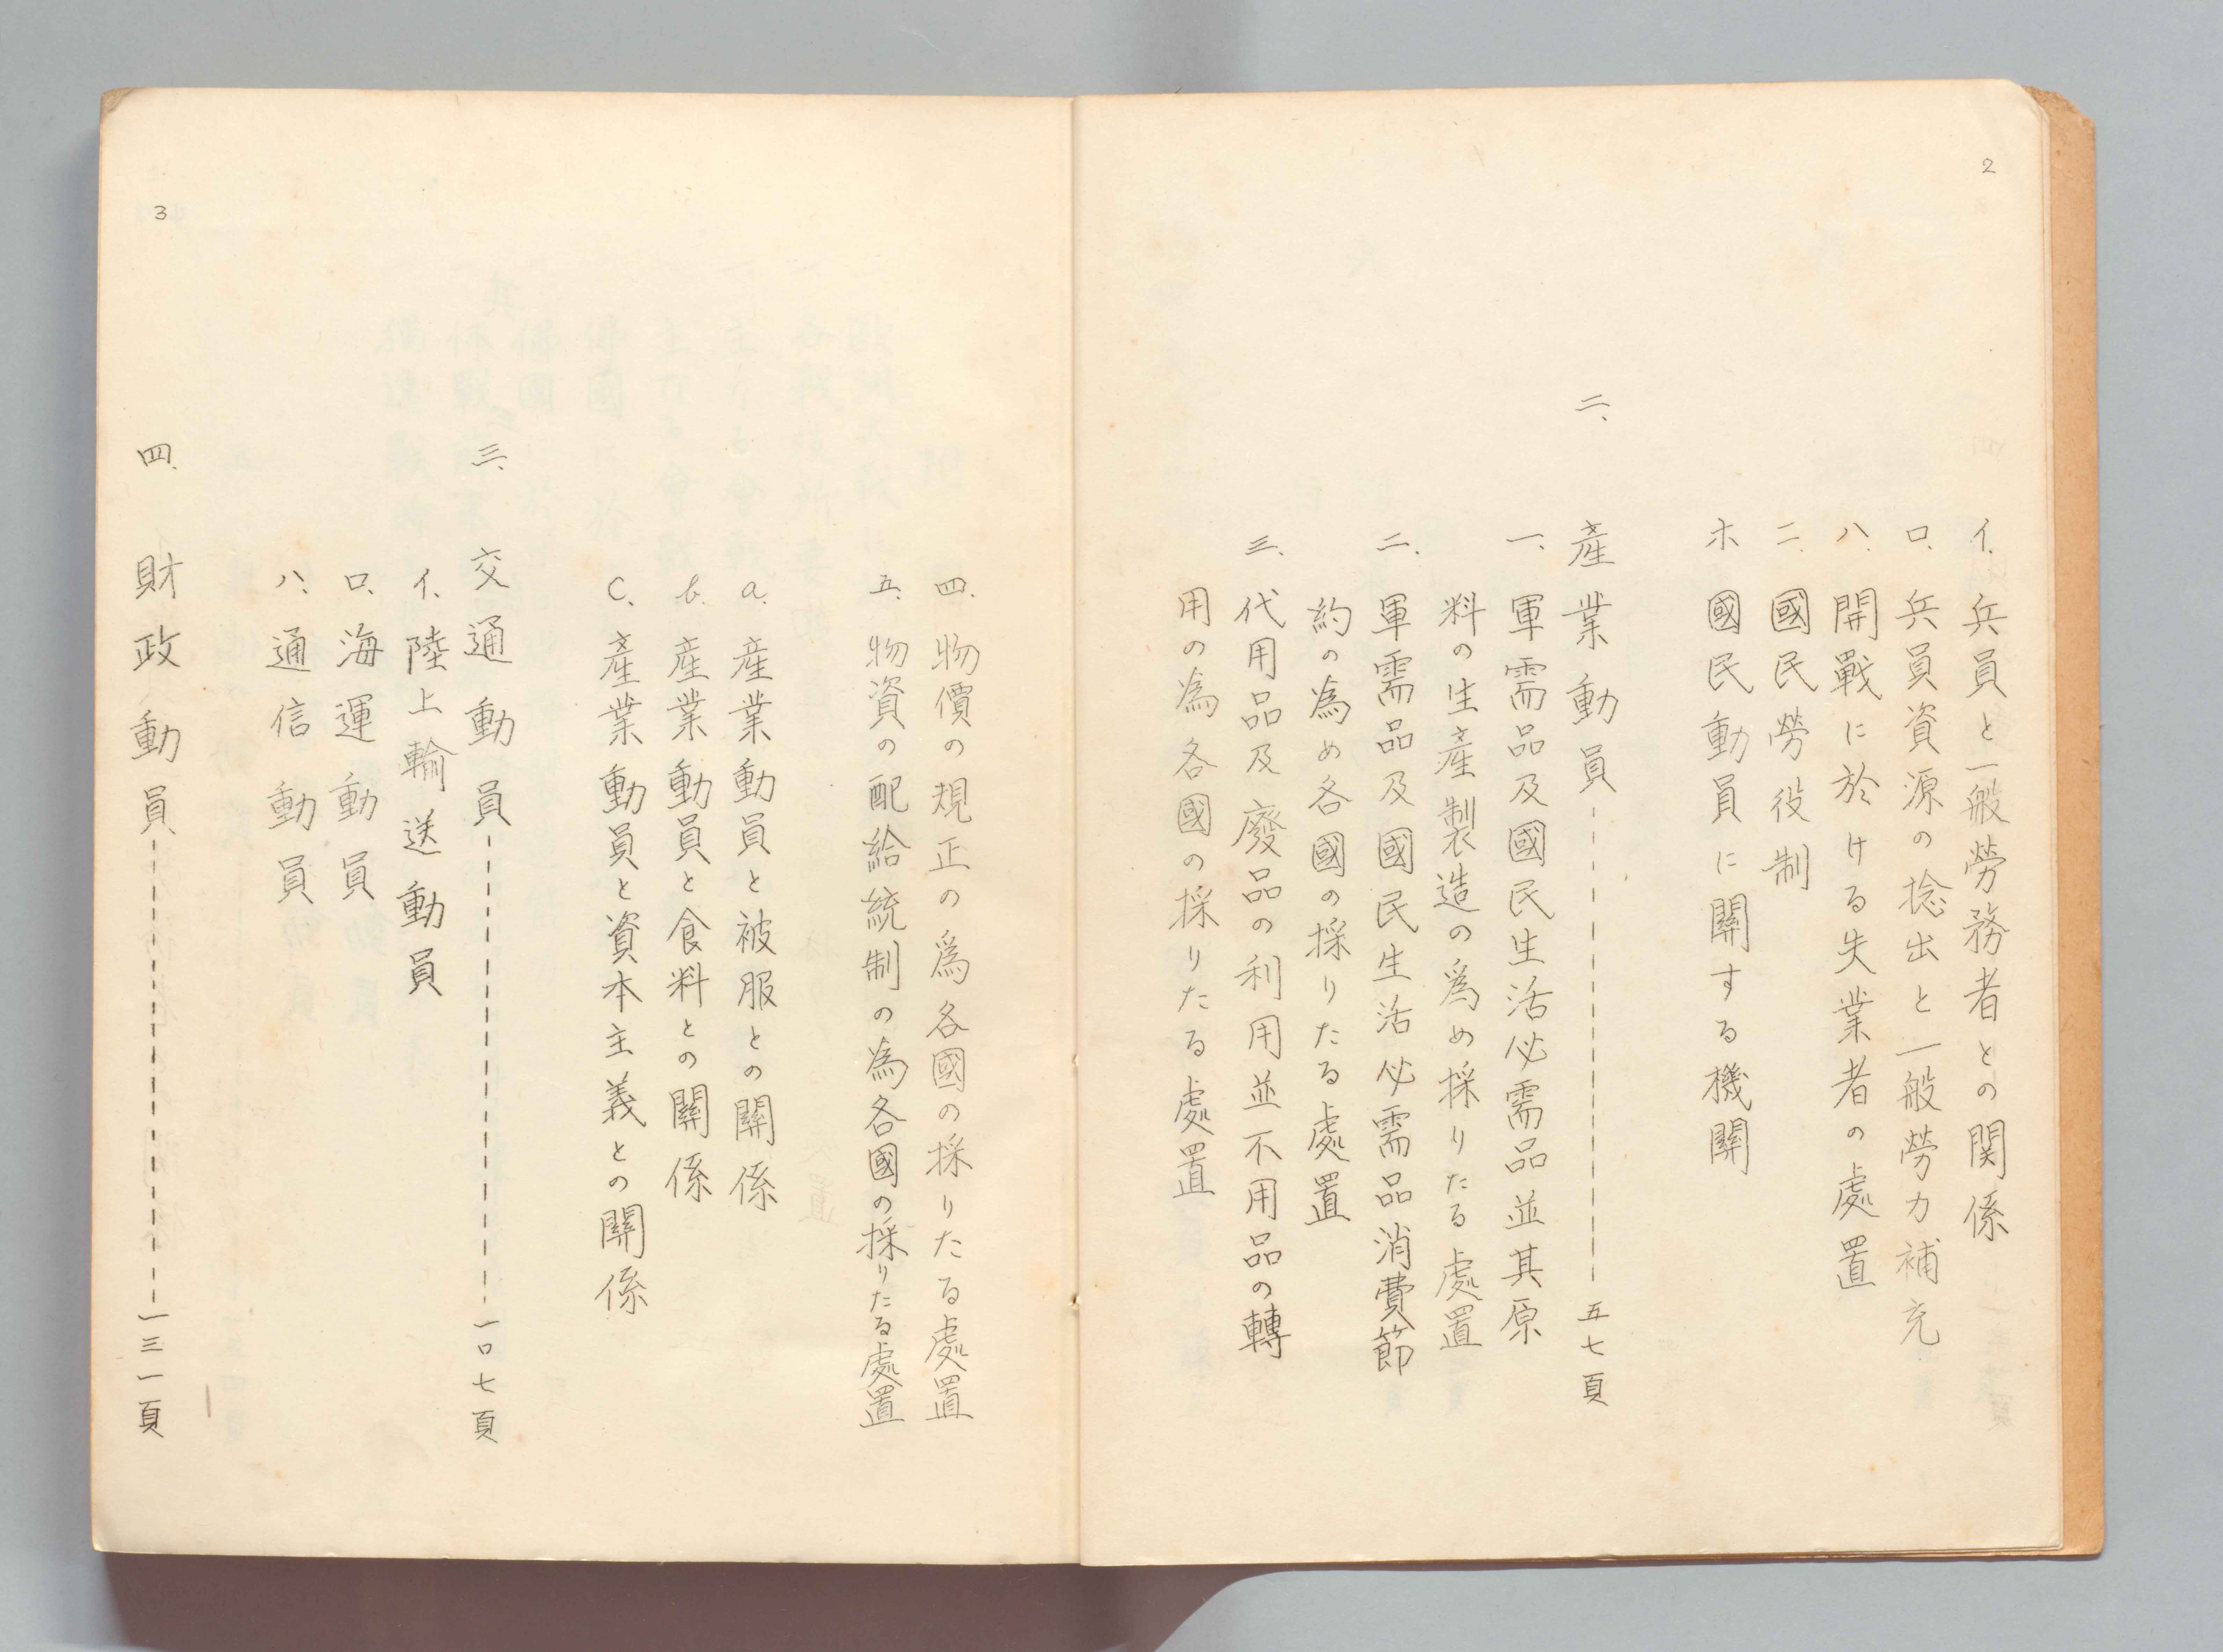 2
イ.兵員と一般勞務者との関係
ロ.兵員資源の捻出と一般勞力補充
ハ.開戰に於ける失業者の處置
ニ.國民勞役制
ホ國民動員に關する機關
二、産業動員 五七頁
一、軍需品及國民生活必需品並其原
料の生産製造の爲め採りたる處置
二.軍需品及國民生活必需品消費節
約の為め各國の採りたる處置
三.代用品及廢品の利用並不用品の轉
用の為各國の採りたる處置
四.物價の規正の爲各國の採りたる處置
五.物資の配給統制の為各國の採りたる處置
a.産業動員と被服との關係
b.産業動員と食料との關係
C.産業動員と資本主義との關係
三、交通動員 一〇七頁
イ.陸上輸送動員
ロ.海運動員
ハ、通信動員
四.財政動員 一三一頁
3